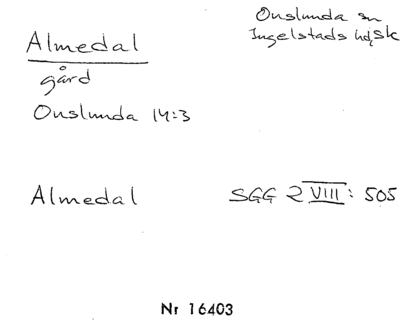 Onslunda sn
Ingelstads hd, Sk
Almedal
gård
Onslunda 14:3
Almedal
SGG 2 VIII: 505
Nr 16403